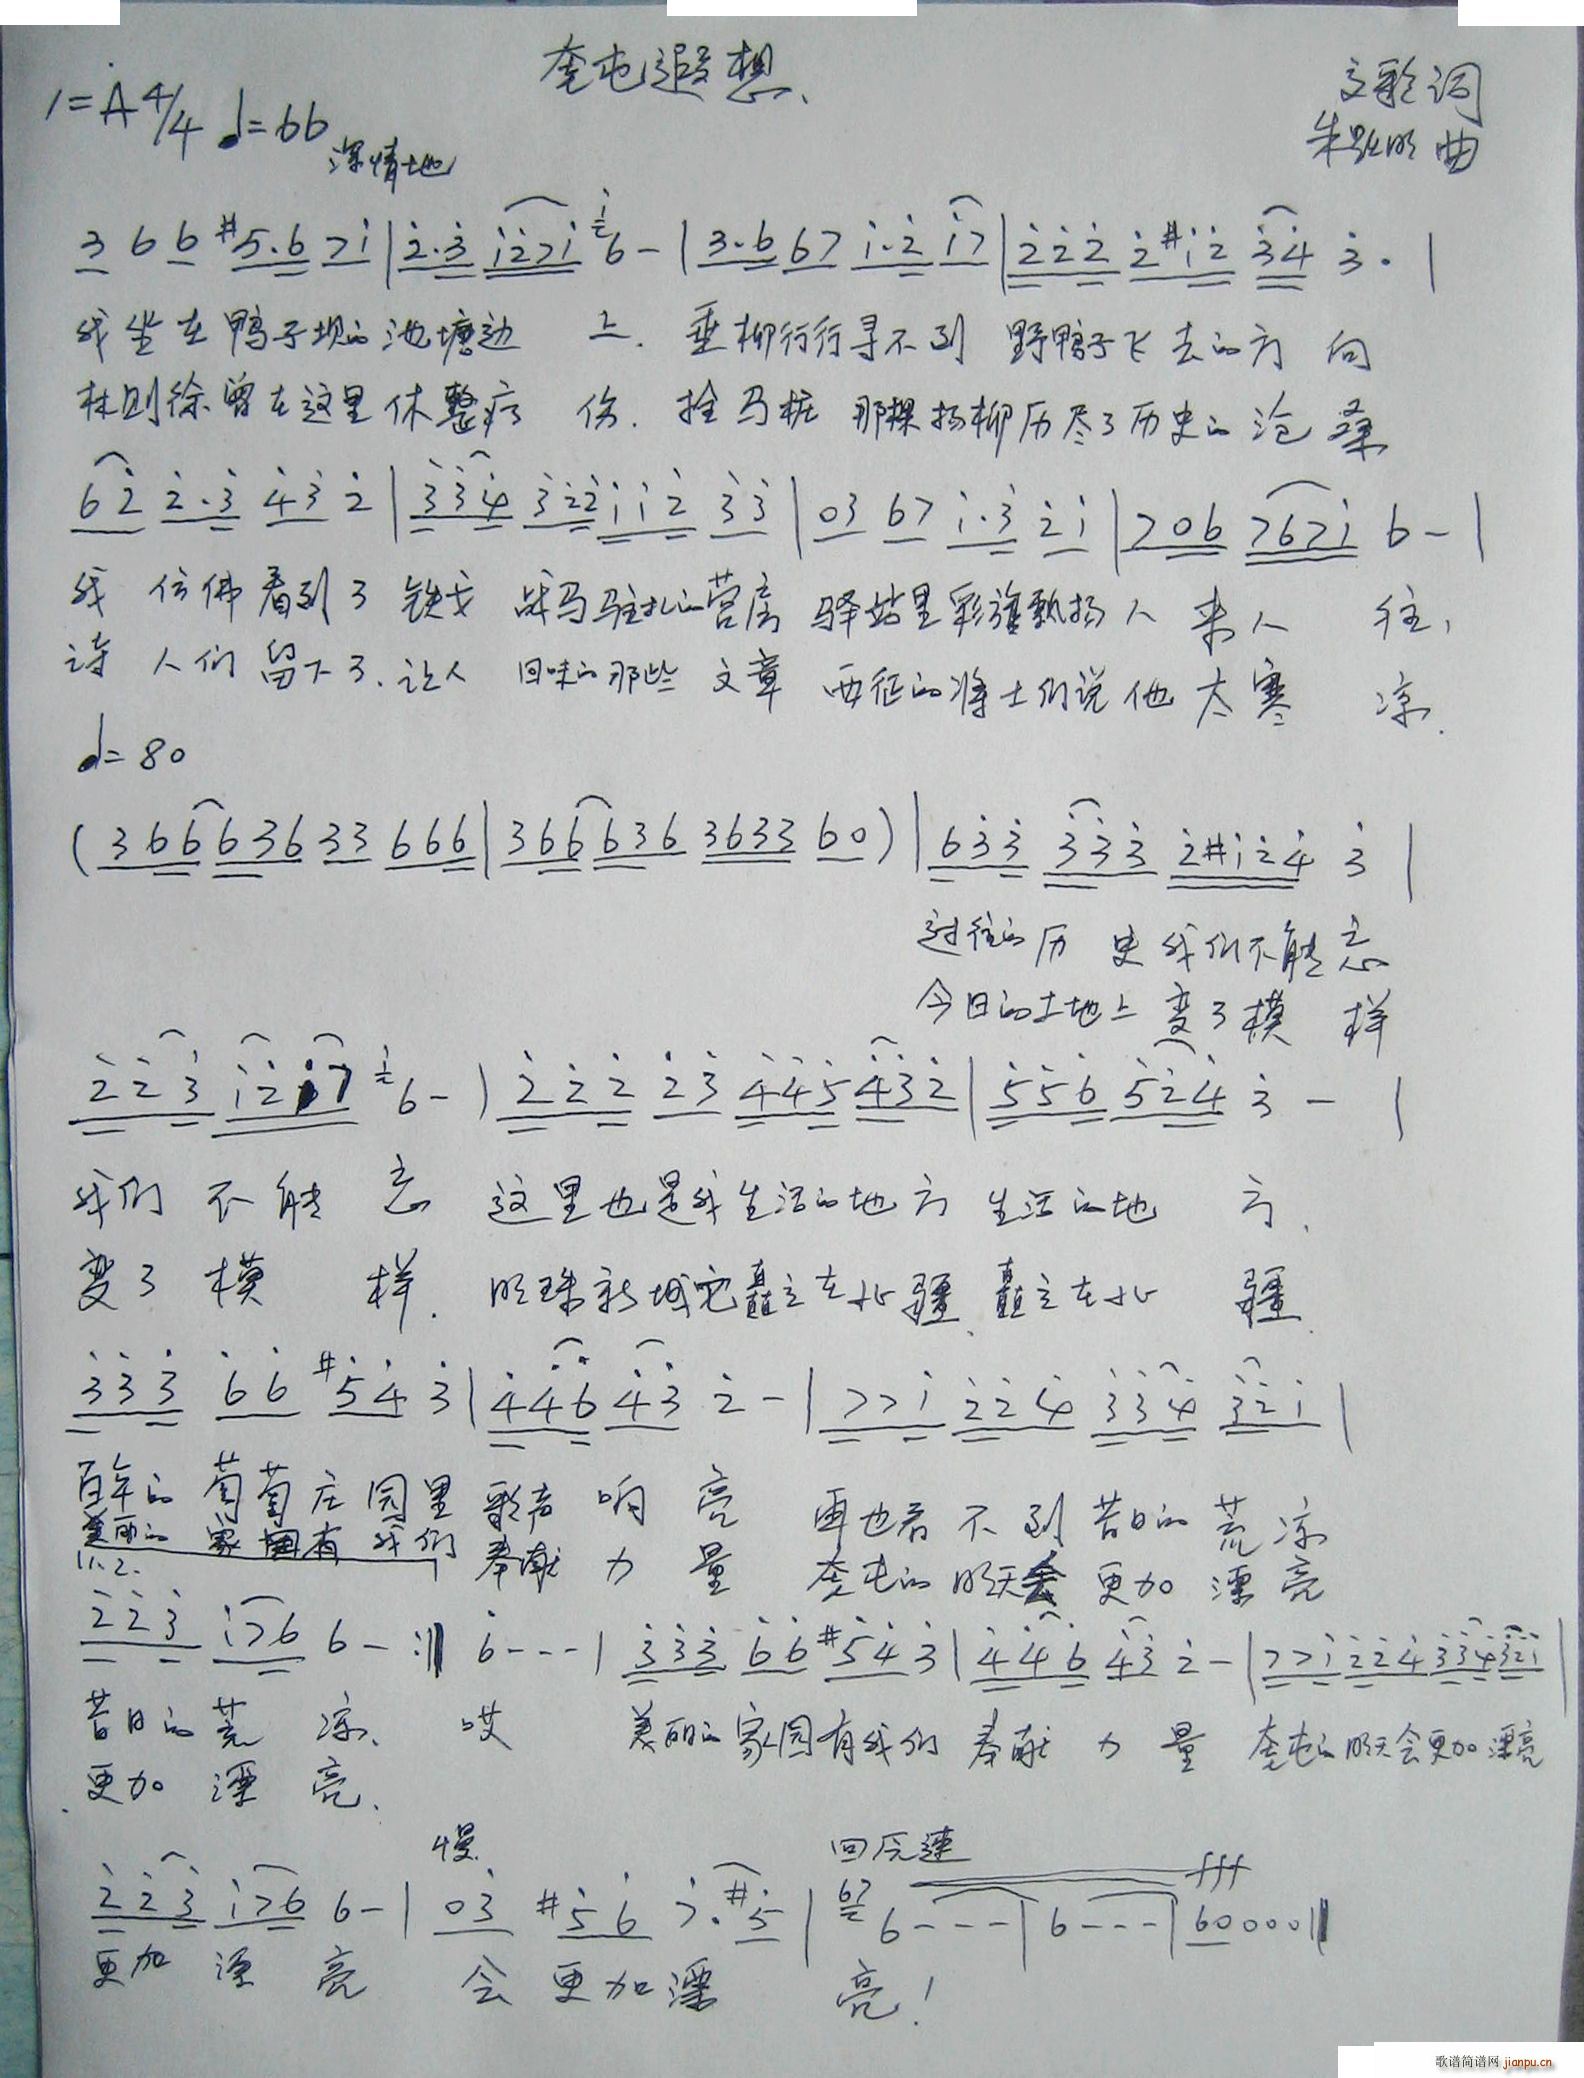 奎屯遐想
1=A 4/4 ♩=66
深情地
文彩词
曲
3 6 6 #5.6 7i | 2.3 i27i 6 - | 3.6 67 i.2 i7 | 222 2#i2 34 3. |
我坐在鸭子坝的池塘边 上. 垂柳行行寻不到 野鸭子飞去的方 向
林则徐曾在这里休整疗 伤. 拴马桩 那棵杨柳历尽了历史的沧 桑
62 2.3 43 2 | 334 322 ii2 33 | 03 67 i.3 2i | 706 767i 6 - |
我 仿佛看到了 铁戈 战马驻扎的营房 驿站里彩旗飘扬人 来人 往,
诗 人们留下了.让人 回味的那些 文章 西征的将士们说他太寒 凉.
♩=80
(366 636 33 666 | 366 636 3633 60) | 633 333 2#i24 3 |
过往的历 史我们不能忘
今日的土地上变了模 样
223 i2i7 6 - | 222 23 445 432 | 556 524 3 - |
我们 不能 忘 这里也是我生活的地方 生活的地 方.
变了 模 样. 明珠新城它矗立在北疆 矗立在北 疆.
333 66 #54 3 | 446 43 2 - | 77i 224 334 32i |
百年的 葡萄庄园里 歌声 响 亮 再也看 不到 昔日的 荒凉
美丽的 家园有 我们 奉献 力 量 奎屯的明天会 更加 漂亮
1.2.
223 i76 6 - :‖ 6 - - - | 333 66 #54 3 | 446 43 2 - | 77i 224 334 32i |
昔日的荒 凉. 哎 美丽的家园有我们 奉献 力 量 奎屯的明天会更加漂亮
更加 漂 亮.
慢 回原速 fff
223 i76 6 - | 03 #56 7.#5 | 67 6 - - - | 6 - - - | 60000 ‖
更加 漂 亮 会 更加漂 亮!
歌谱简谱网 jianpu.cn